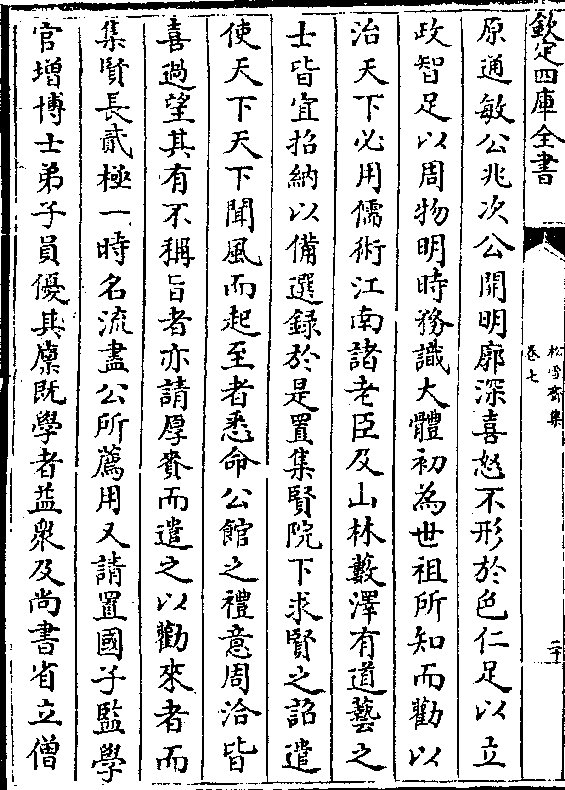 欽定四庫全書
松雪齋集
卷七
二十
原通敏公兆次公開明廓深喜怒不形於色仁足以立
政智足以周物明時務識大體初為世祖所知而勸以
治天下必用儒術江南諸老臣及山林藪澤有道藝之
士皆宜招納以備選録於是置集賢院下求賢之詔遣
使天下天下聞風而起至者悉命公館之禮意周洽皆
喜過望其有不稱旨者亦請厚賚而遣之以勸來者而
集賢長貳極一時名流盡公所薦用又請置國子監學
官增博士弟子員優其廩既學者益衆及尚書省立僧